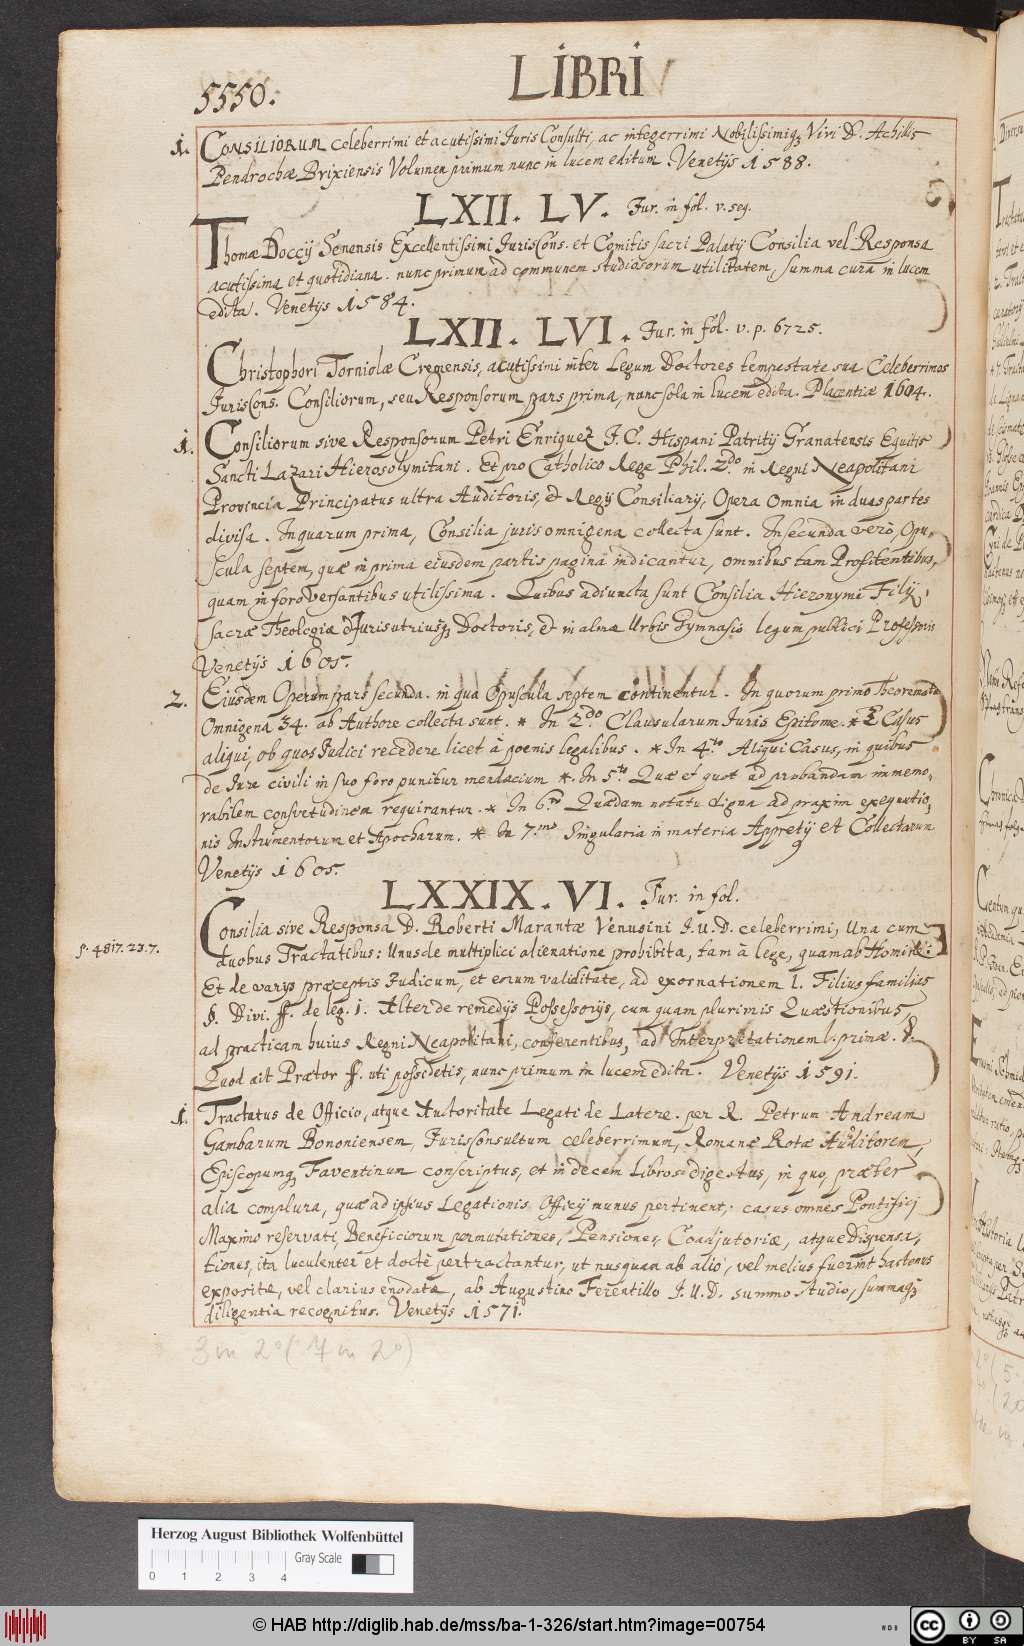 LIBRI
5550.
1. CONSILIORUM celeberrimi et acutissimi Juris Consulti, ac integerrimi Nobilissimiq3 Viri D. Achillis
Pendrochæ Brixiensis Volumen primum nunc in lucem editum. Venetijs 1588.
LXII. LV. Jur. in fol. v. seq.
Thomæ Doccij Senensis Excellentissimi JurisCons. et Comitis sacri Palatij Consilia vel Responsa
acutissima et quotidiana. nunc primum ad communem studiosorum utilitatem, summa cura in lucem
edita. Venetijs 1584.
LXII. LVI. Jur. in fol. v. p. 6725.
Christophori Torniolæ Cremensis, acutissimi inter Legum Doctores tempestate sua Celeberrimos
JurisCons. Consiliorum, seu Responsorum pars prima, nunc sola in lucem edita. Placentiæ 1604.
1. Consiliorum sive Responsorum Petri Enriquez J. C. Hispani Patritij Granatensis Equitis
Sancti Lazari Hierosolymitani. Et pro Catholico Rege Phil. 2do in Regni Neapolitani
Provincia Principatus ultra Auditoris, et Regij Consiliarij, Opera Omnia in duas partes
divisa. In quarum prima, Consilia juris omnigena collecta sunt. In secunda verò, Opu-
scula septem, quæ in prima eiusdem partis pagina indicantur, omnibus tam Profitentibus,
quam in foro versantibus utilissima. Quibus adiuncta sunt Consilia Hieronymi Filij,
sacræ Theologiæ et Juris utriusq3 Doctoris, et in almæ Urbis Gymnasio legum publici Professoris
Venetijs 1605.
2. Eiusdem Operum pars secunda. in qua Opuscula septem continentur. In quorum primo Theoremata
Omnigena 34. ab Authore collecta sunt. * In 2do. Clausularum Juris Epitome. * 3 Casus
aliqui, ob quos Judici recedere licet à poenis legalibus. * In 4to. Aliqui Casus, in quibus
de Jure civili in suo foro punitur mendacium *. In 5to Quæ et quot ad probandam immemo-
rabilem consvetudinem requirantur. * In 6to Quædam notatu digna ad praxim exequutio-
nis Instrumentorum et Apocharum. * In 7.mo Singularia in materia Appretij et Collectarum
Venetijs 1605.
LXXIX. VI. Jur. in fol.
p. 4817. 23. 7.
Consilia sive Responsa D. Roberti Marantæ Venusini J. U. D. celeberrimi, Una cum
duobus Tractatibus: Unus de multiplici alienatione prohibita, tam à lege, quam ab Homine:
Et de varijs præceptis Judicum, et eorum validitate, ad exornationem l. Filius familias
§. Divi. ff. de leg. 1. Alter de remedijs Possessorijs, cum quam plurimis Quæstionibus
ad practicam huius Regni Neapolitani, conferentibus, ad Interpretationem l. primæ. §.
Quod ait Prætor ff. uti possidetis, nunc primum in lucem edita. Venetijs 1591.
1. Tractatus de Officio, atque Autoritate Legati de Latere. per R. Petrum Andream
Gambarum Bononiensem, JurisConsultum celeberrimum, Romanæ Rotæ Auditorem,
Episcopumq3 Faventinum conscriptus, et in decem Libros digestus, in quo, præter
alia complura, quæ ad ipsius Legationis Officij munus pertinent, casus omnes Pontifici
Maximo reservati, Beneficiorum permutationes, Pensiones, Coadjutoriæ, atque Dispensa-
tiones, ita luculenter et doctè pertractantur, ut nusquam ab alio, vel melius fuerint hactenus
expositæ, vel clarius enodatæ, ab Augustino Ferentillo J. U. D. summo studio, summaq3
diligentia recognitus. Venetijs 1571.
3 in 2° (4 in 2°)
Herzog August Bibliothek Wolfenbüttel
Gray Scale
0 1 2 3 4
© HAB http://diglib.hab.de/mss/ba-1-326/start.htm?image=00754
cc BY SA